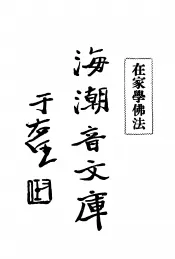 在家學佛法
海潮音文庫
于右任